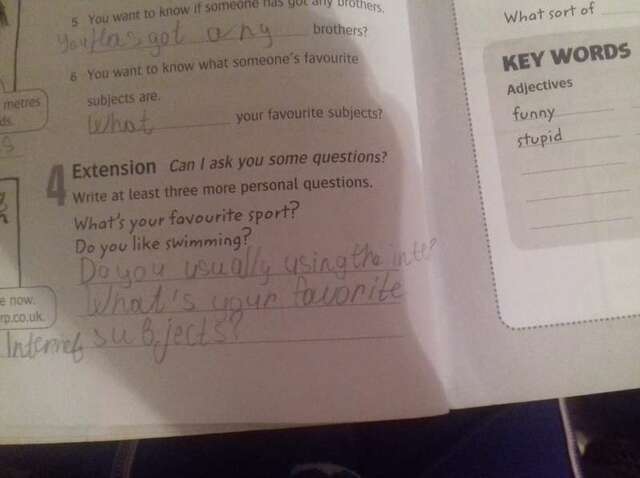 5 You want to know if someone has got any brothers.
You Has got any brothers?
6 You want to know what someone's favourite
subjects are.
What your favourite subjects?
4 Extension Can I ask you some questions?
Write at least three more personal questions.
What's your favourite sport?
Do you like swimming?
Do you usually using the inte?
What's your favorite
Internet subjects?
metres
ds.
s
e now.
rp.co.uk.
What sort of
KEY WORDS
Adjectives
funny
stupid